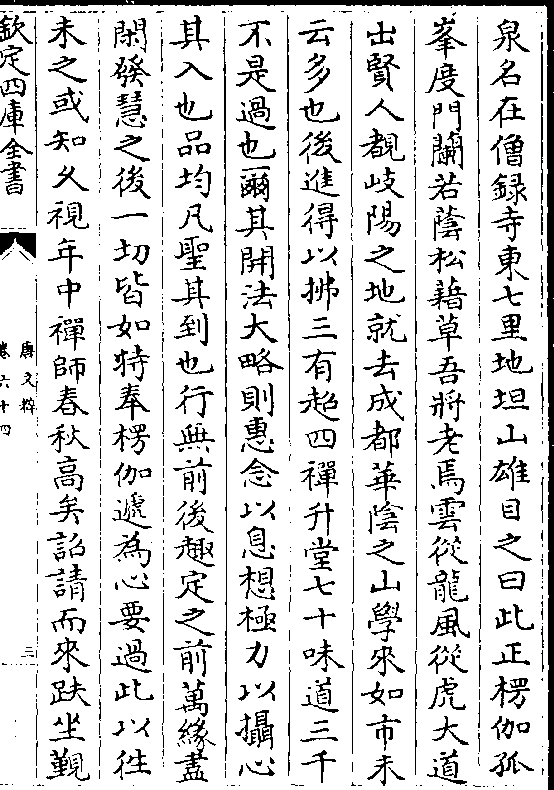 泉名在僧録寺東七里地坦山雄目之曰此正楞伽孤
峯度門蘭若蔭松藉草吾將老焉雲從龍風從虎大道
出賢人覩岐陽之地就去成都華陰之山學來如市未
云多也後進得以拂三有超四禪升堂七十味道三千
不是過也爾其開法大略則惠念以息想極力以攝心
其入也品均凡聖其到也行無前後趣定之前萬緣盡
閉發慧之後一切皆如特奉楞伽遞為心要過此以往
未之或知久視年中禪師春秋高矣詔請而來趺坐覲
欽定四庫全書
唐文粹
卷六十四
三